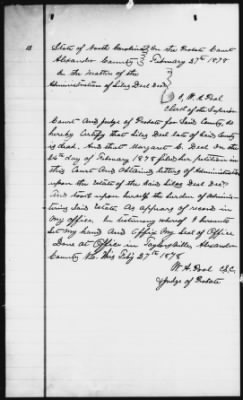 13
State of North Carolina } In the Probate Court
Alexander County } February 27th 1878
In the matter of the
Administration of Silas Deal Decd.
I, W. A. Pool
Clerk of the Superior
Court And Judge of Probate for Said County, do
hereby Certify that Silas Deal late of Said County
is dead. And that Margaret C. Deal On the
day of February 1878 filed her petition in
this Court And Obtained letters of Administration
upon the estate of the Said Silas Deal Decd.
And took upon herself the burden of Adminis-
tering Said Estate As appears of record in
My office. In testimony whereof I hereunto
Set my hand And Affix My Seal of Office
Done at Office in Taylorsville Alexander
County No. this Feby 27th 1878
W. A. Pool C.S.C.
& Judge of Probate